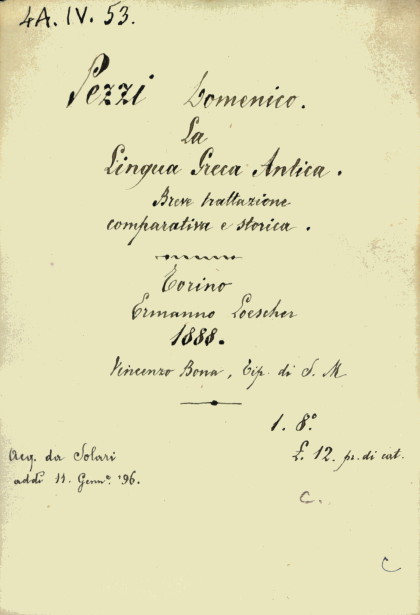 4A. IV. 53.
Pezzi Domenico.
La
Lingua Greca Antica.
Breve trattazione
comparativa e storica.
Torino
Ermanno Loescher
1888.
Vincenzo Bona, Tip. di S. M
1. 8.°
Acq. da Solari
£. 12. pr. di cat.
addì 11. Genn.° '96.
C.
C